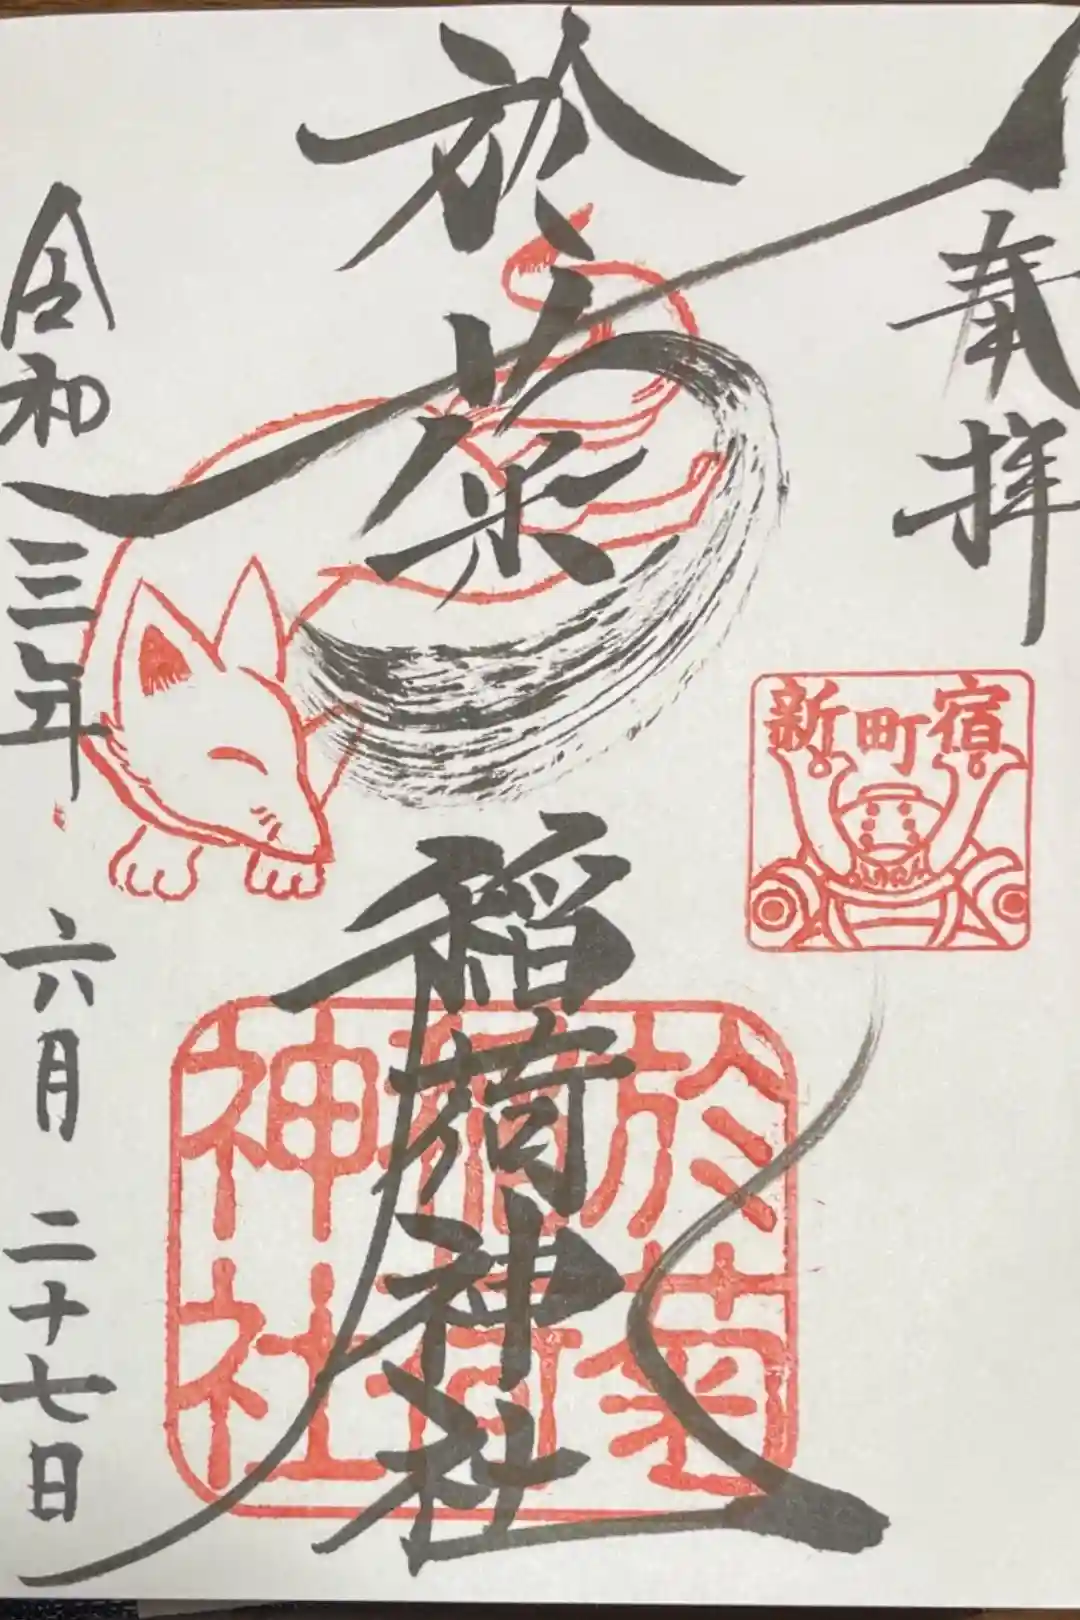 奉拝
於菊稲荷神社
令和三年 六月 二十七日
新町宿
於菊
稲荷
神社